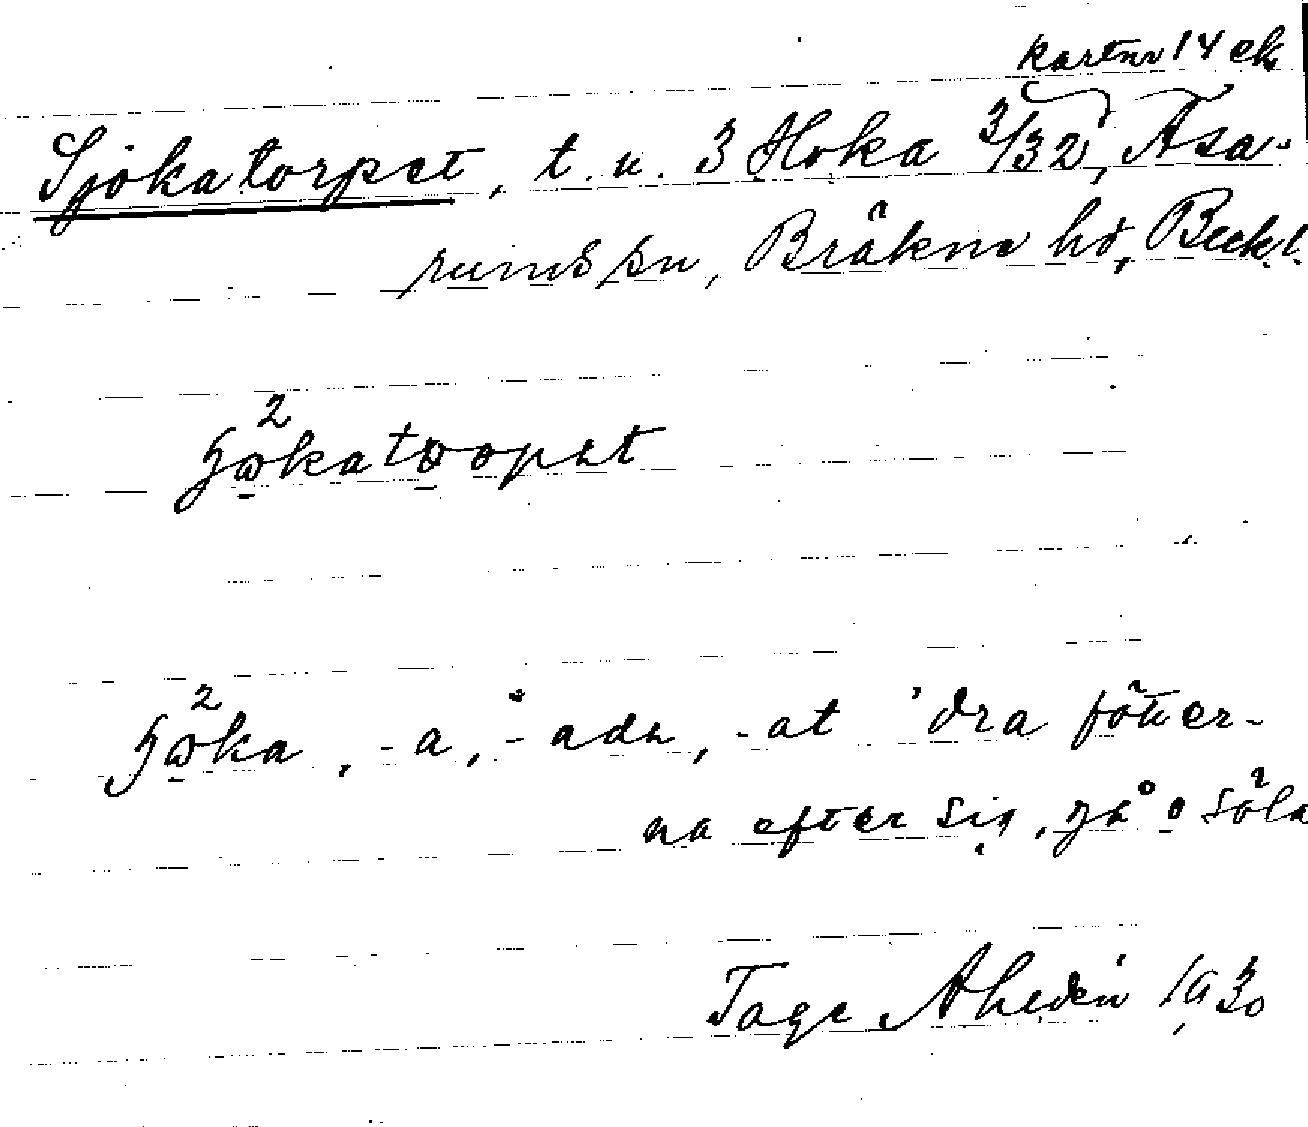 kartnr 14 ek
Sjökatorpet, t. u. 3 Hoka 3/32, Åsa-
rums sn, Bräkne hd, Blek. l.
-a, -ada, -at 'dra fötter-
na efter sig, gå o söla
Tage Ahldén 1930